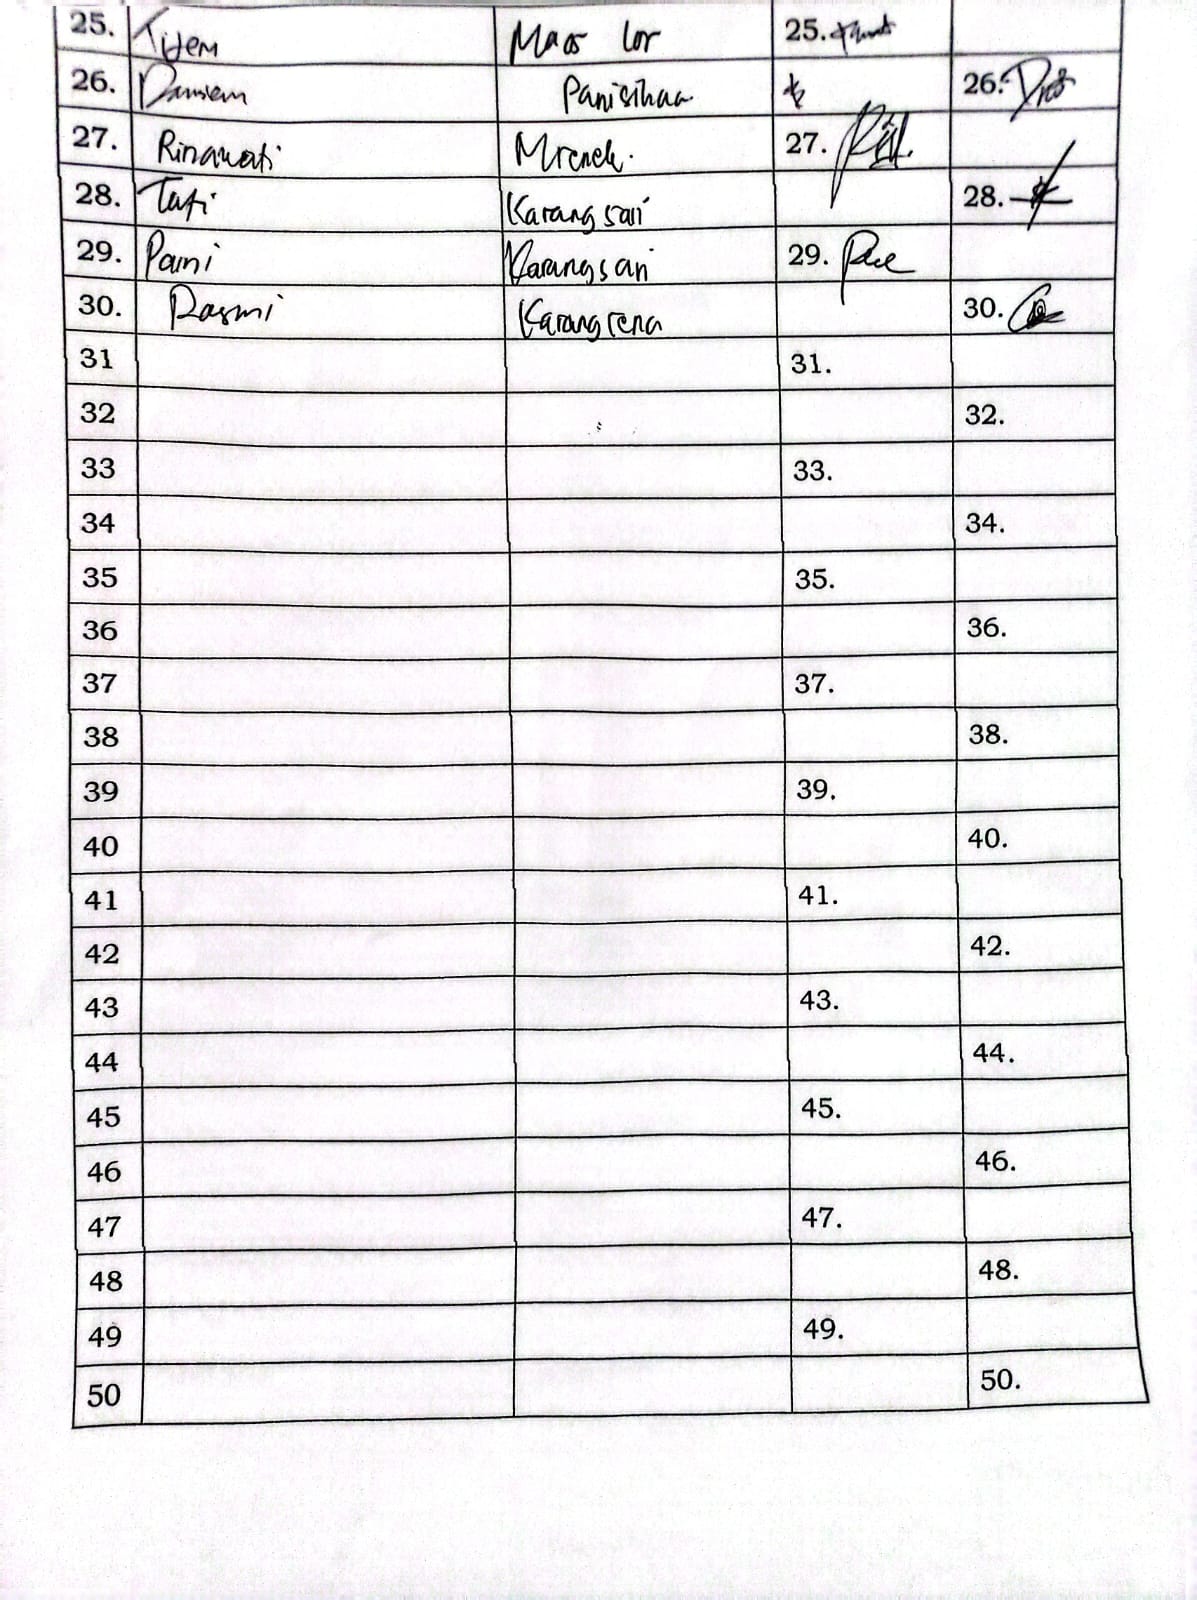 25. Tijem Maos Lor 25.
26. Damiem Panisihan 26.
27. Rinawati Mrenek. 27.
28. Tati Karangsari 28.
29. Paini Karangsari 29.
30. Rasmi Karangrena 30.
31 31.
32 32.
33 33.
34 34.
35 35.
36 36.
37 37.
38 38.
39 39.
40 40.
41 41.
42 42.
43 43.
44 44.
45 45.
46 46.
47 47.
48 48.
49 49.
50 50.